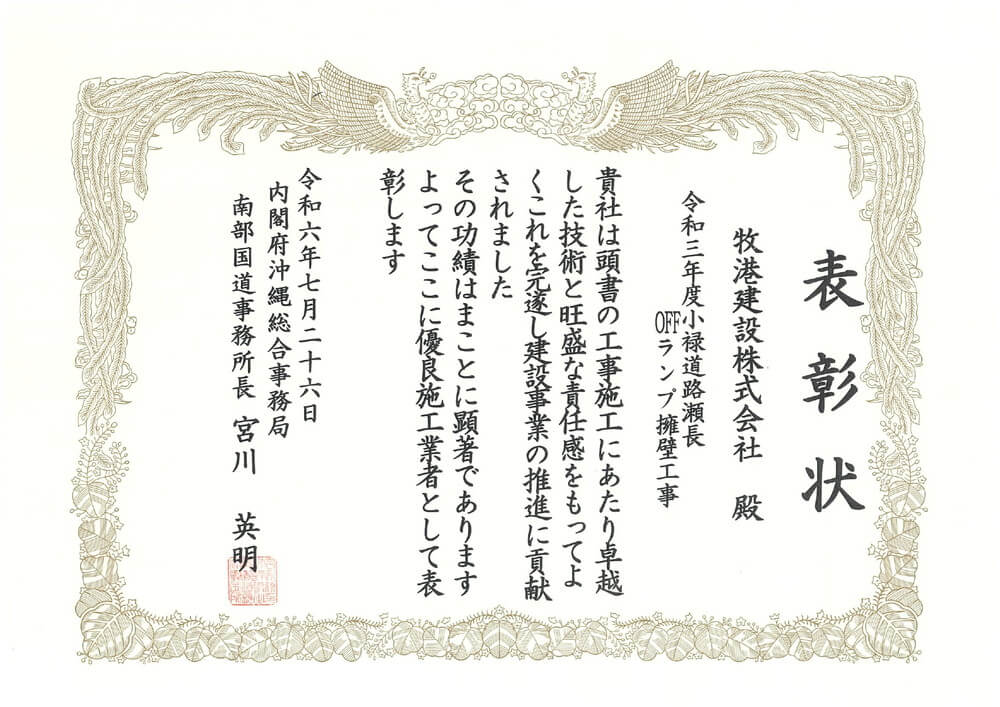 表彰状
牧港建設株式会社 殿
令和三年度小禄道路瀬長
OFFランプ擁壁工事
貴社は頭書の工事施工にあたり卓越
した技術と旺盛な責任感をもってよ
くこれを完遂し建設事業の推進に貢献
されました
その功績はまことに顕著であります
よってここに優良施工業者として表
彰します
令和六年七月二十六日
内閣府沖縄総合事務局
南部国道事務所長 宮川 英明